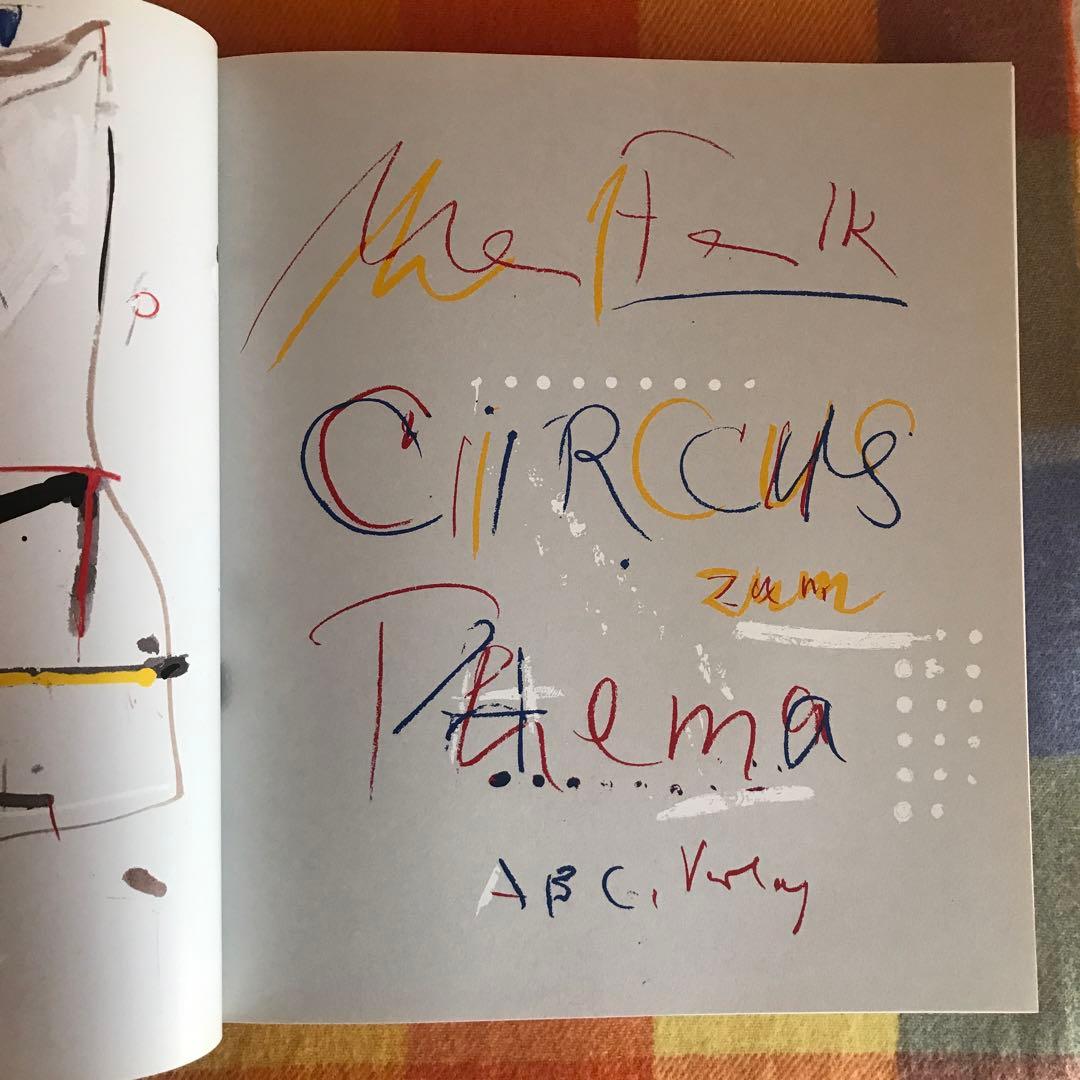 Falk
CiRCUS
zum
Thema
ABC, Verlag